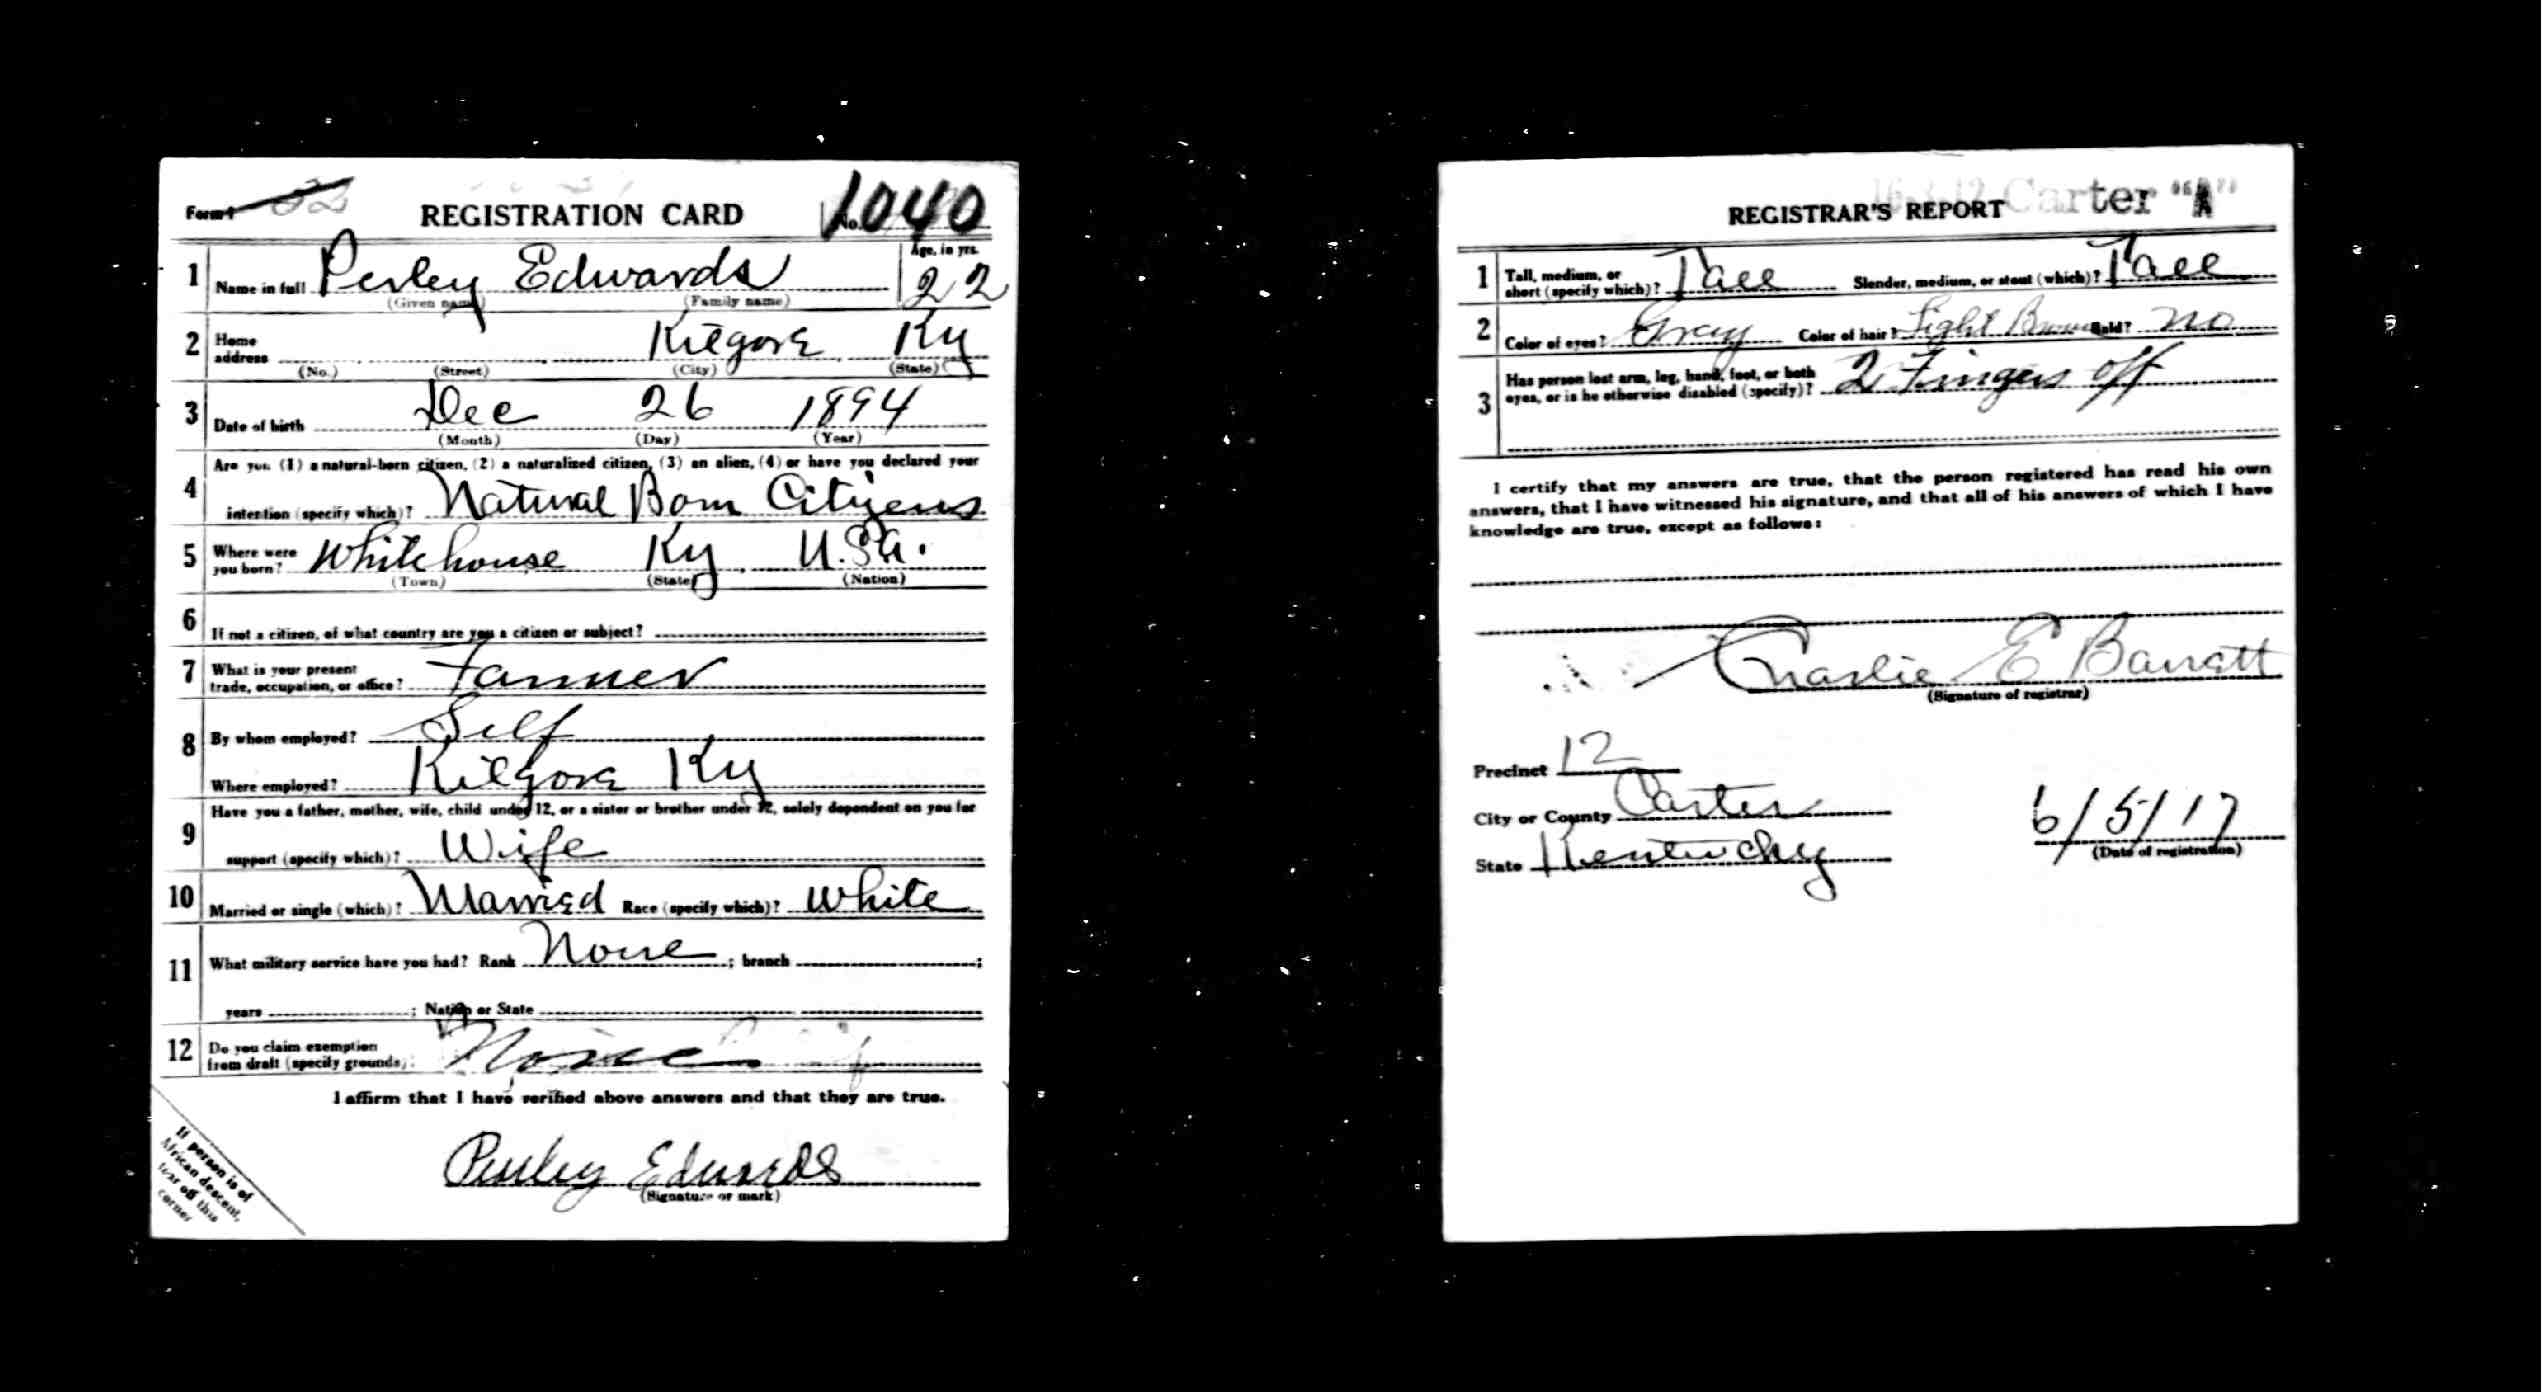 Form 1 32 REGISTRATION CARD No. 1040
1 Name in full Perley Edwards Age, in yrs. 22
(Given name) (Family name)
2 Home address Kilgore Ky
(No.) (Street) (City) (State)
3 Date of birth Dec 26 1894
(Month) (Day) (Year)
4 Are you (1) a natural-born citizen, (2) a naturalized citizen, (3) an alien, (4) or have you declared your
intention (specify which)? Natural Born Citizens
5 Where were you born? Whitehouse Ky U.S.A.
(Town) (State) (Nation)
6 If not a citizen, of what country are you a citizen or subject?
7 What is your present trade, occupation, or office? Farmer
8 By whom employed? Self
Where employed? Kilgore Ky
9 Have you a father, mother, wife, child under 12, or a sister or brother under 12, solely dependent on you for
support (specify which)? Wife
10 Married or single (which)? Married Race (specify which)? White
11 What military service have you had? Rank None ; branch ;
years ; Nation or State
12 Do you claim exemption from draft (specify grounds)? None
I affirm that I have verified above answers and that they are true.
Perley Edwards
(Signature or mark)
If person is of
African descent,
tear off this
corner
Carter "A"
REGISTRAR'S REPORT
1 Tall, medium, or short (specify which)? Tall Slender, medium, or stout (which)? Tall
2 Color of eyes? Gray Color of hair? Light Brown Bald? no
3 Has person lost arm, leg, hand, foot, or both eyes, or is he otherwise disabled (specify)? 2 Fingers off
I certify that my answers are true, that the person registered has read his own
answers, that I have witnessed his signature, and that all of his answers of which I have
knowledge are true, except as follows:
Charlie E Barratt
(Signature of registrar)
Precinct 12
City or County Carter
State Kentucky
6/5/17
(Date of registration)